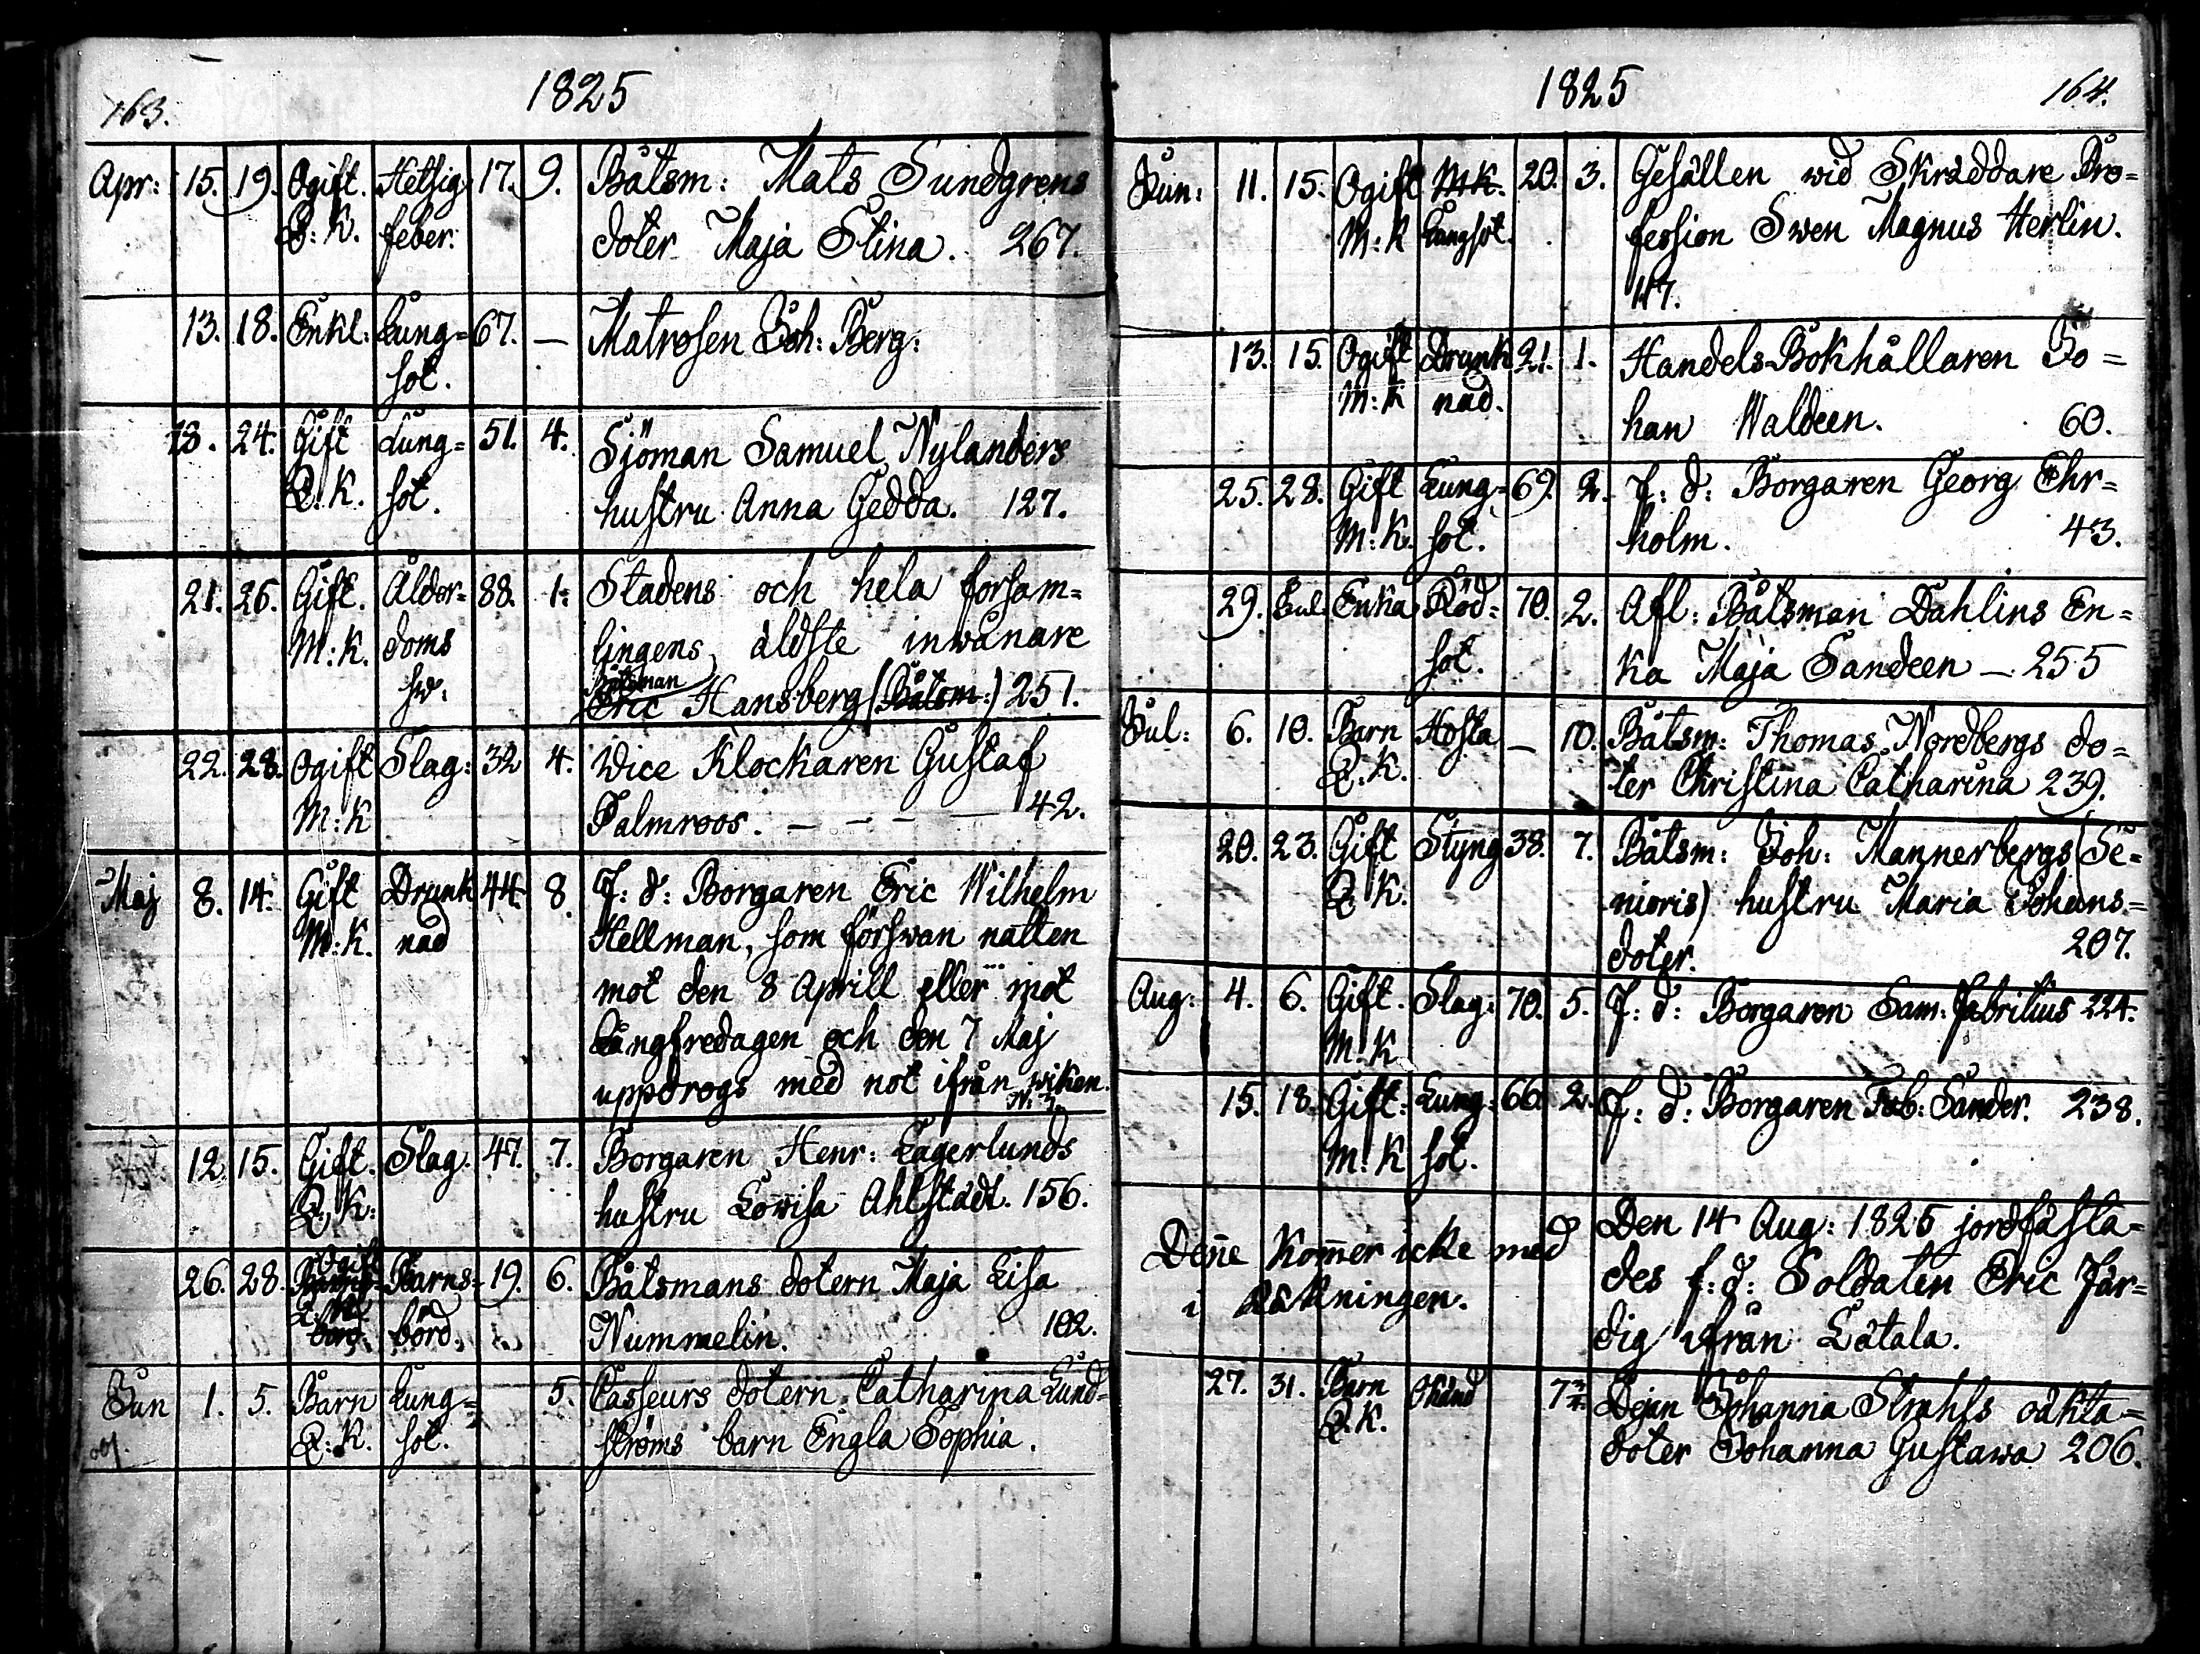 163.
1825
Apr: 15. 19. Ogift. Hetsig 17. 9. Båtsm: Mats Sundgrens
Q: K. feber. doter Maja Stina. 267.
13. 18. Enkl: Lung= 67. — Matrosen Joh: Berg:
sot.
18. 24. Gift Lung= 51. 4. Sjöman Samuel Nylanders
Q: K. sot. hustru Anna Gedda. 127.
21. 26. Gift. Ålder= 88. 1. Stadens och hela försam=
M: K. doms lingens äldste inwånare
Båtsman
Eric Hansberg (Båtsm:) 251.
22. 28. Ogift Slag: 32 4. Wice Klockaren Gustaf
M: K Palmroos. — — — — 42.
Maj 8. 14. Gift Drunk 44. 8. F: d: Borgaren Eric Wilhelm
M: K. nad Hellman, som förswan natten
mot den 8 Aprill eller mot
Långfredagen och den 7 Maj
uppdrogs med not ifrån wiken.
12. 15. Gift. Slag. 47. 7. Borgaren Henr: Lagerlunds
Q: K: hustru Lowisa Ahlstädt. 156.
Ogift
26. 28. Barns= 19. 6. Båtsmans dotern Maja Lisa
börd. Nummelin. 102.
Jun 1. 5. Barn Lung= 5. Casseurs dotern Catharina Lund=
Q: K. sot. ströms barn Engla Sophia.
1825
164.
Jun: 11. 15. Ogift M:K. 20. 3. Gesällen wid Skräddare Pro=
M: K Lungsot. fession Swen Magnus Herlin.
117.
13. 15. Ogift Drunk 21. 1. Handels Bokhållaren Jo=
M: K nad. han Waldeen. 60.
25. 28. Gift Lung= 69. 2. F: d: Borgaren Georg Ehr=
M: K. sot. holm. 43.
29. Jul. Enka Röd= 70. 2. Afl: Båtsman Dahlins En=
sot. ka Maja Sandeen — 255
Jul: 6. 10. Barn Hosta — 10. Båtsm: Thomas Nordbergs do=
Q: K. ter Christina Catharina 239.
20. 23. Gift Styng 38. 7. Båtsm: Joh: Mannerbergs (Se=
Q: K. nioris) hustru Maria Johans=
doter. 207.
Aug: 4. 6. Gift. Slag: 70. 5. F: d: Borgaren Sam: Fabritius 224.
M: K
15. 18. Gift: Lung= 66. 2. F: d: Borgaren Tob: Sander. 238.
M: K sot.
Den 14 Aug: 1825 jordfästa=
Deñe kom̃er icke med
des f: d: Soldaten Eric Fär=
i räkningen.
dig ifrån Låtala.
27. 31. Barn Okänd 7 Dejan Johanna Strahls oäkta=
Q. K. doter Johanna Gustawa 206.